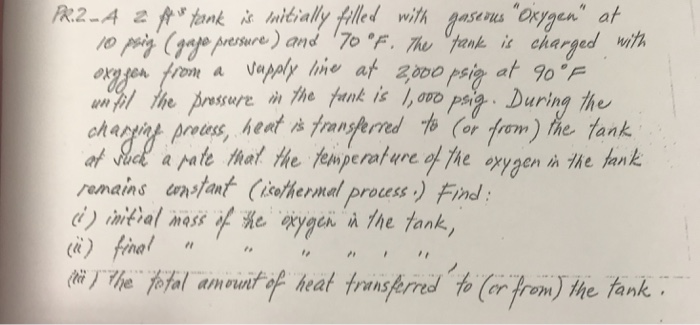 PR.2-A 2 ft³ tank is initially filled with gaseous "Oxygen" at
10 psig (gage pressure) and 70 °F. The tank is charged with
oxygen from a supply line at 2,000 psig at 90°F
until the pressure in the tank is 1,000 psig. During the
charging process, heat is transferred to (or from) the tank
at such a rate that the temperature of the oxygen in the tank
remains constant (isothermal process.) Find:
(i) initial mass of the oxygen in the tank,
(ii) final " " " " " ,
(iii) The total amount of heat transferred to (or from) the tank.